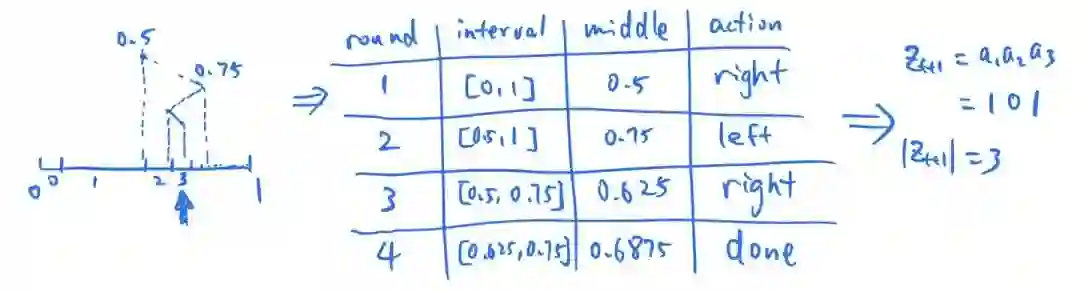 0.5
0.75
0 0 1 2 3 1
⇒
round interval middle action
1 [0,1] 0.5 right
2 [0.5,1] 0.75 left
3 [0.5, 0.75] 0.625 right
4 [0.625,0.75] 0.6875 done
⇒
Z_{t+1} = a₁a₂a₃
= 101
|Z_{t+1}| = 3